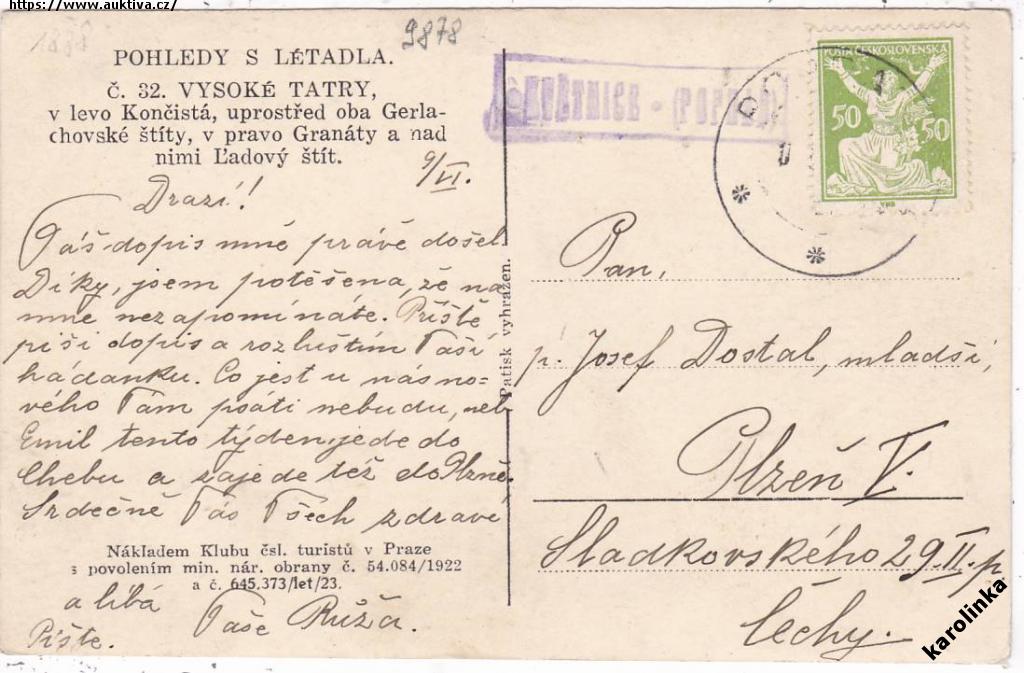 https://www.auktiva.cz/
9878
POHLEDY S LÉTADLA.
Č. 32. VYSOKÉ TATRY,
v levo Končistá, uprostřed oba Gerla-
chovské štíty, v pravo Granáty a nad
nimi Ľadový štít.
9/VI.
Drazí!
Váš dopis mně právě došel.
Díky, jsem potěšena, že na
mne nezapomínáte. Příště
píši dopis a rozluštím Vaši
hádanku. Co jest u nás no=
vého Vám psáti nebudu, neb
Emil tento týden jede do
Chebu a zajede též do Plzně.
Srdečně Vás Všech zdraví
Nákladem Klubu čsl. turistů v Praze
s povolením min. nár. obrany č. 54.084/1922
a č. 645.373/let/23.
a líbá
Vaše Růža.
Pište.
Patisk vyhražen.
POŠTA ČESKOSLOVENSKÁ
50 50
Pan,
p. Josef Dostal, mladší,
Plzeň V.
Sladkovského 29 II. p
Čechy.
karolinka